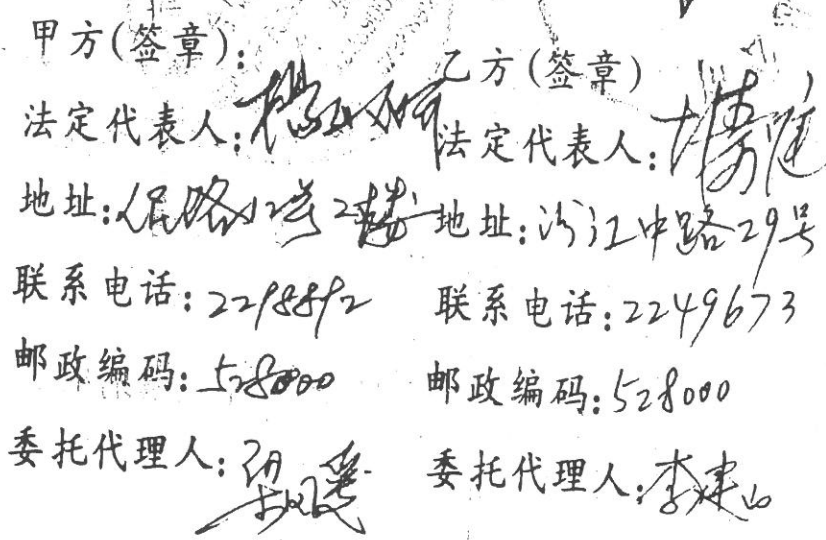 甲方(签章):
法定代表人:
地址:路12号2楼
联系电话:2298892
邮政编码:528000
委托代理人:梁
乙方(签章)
法定代表人:
地址:汾江中路29号
联系电话:2249673
邮政编码:528000
委托代理人:李建